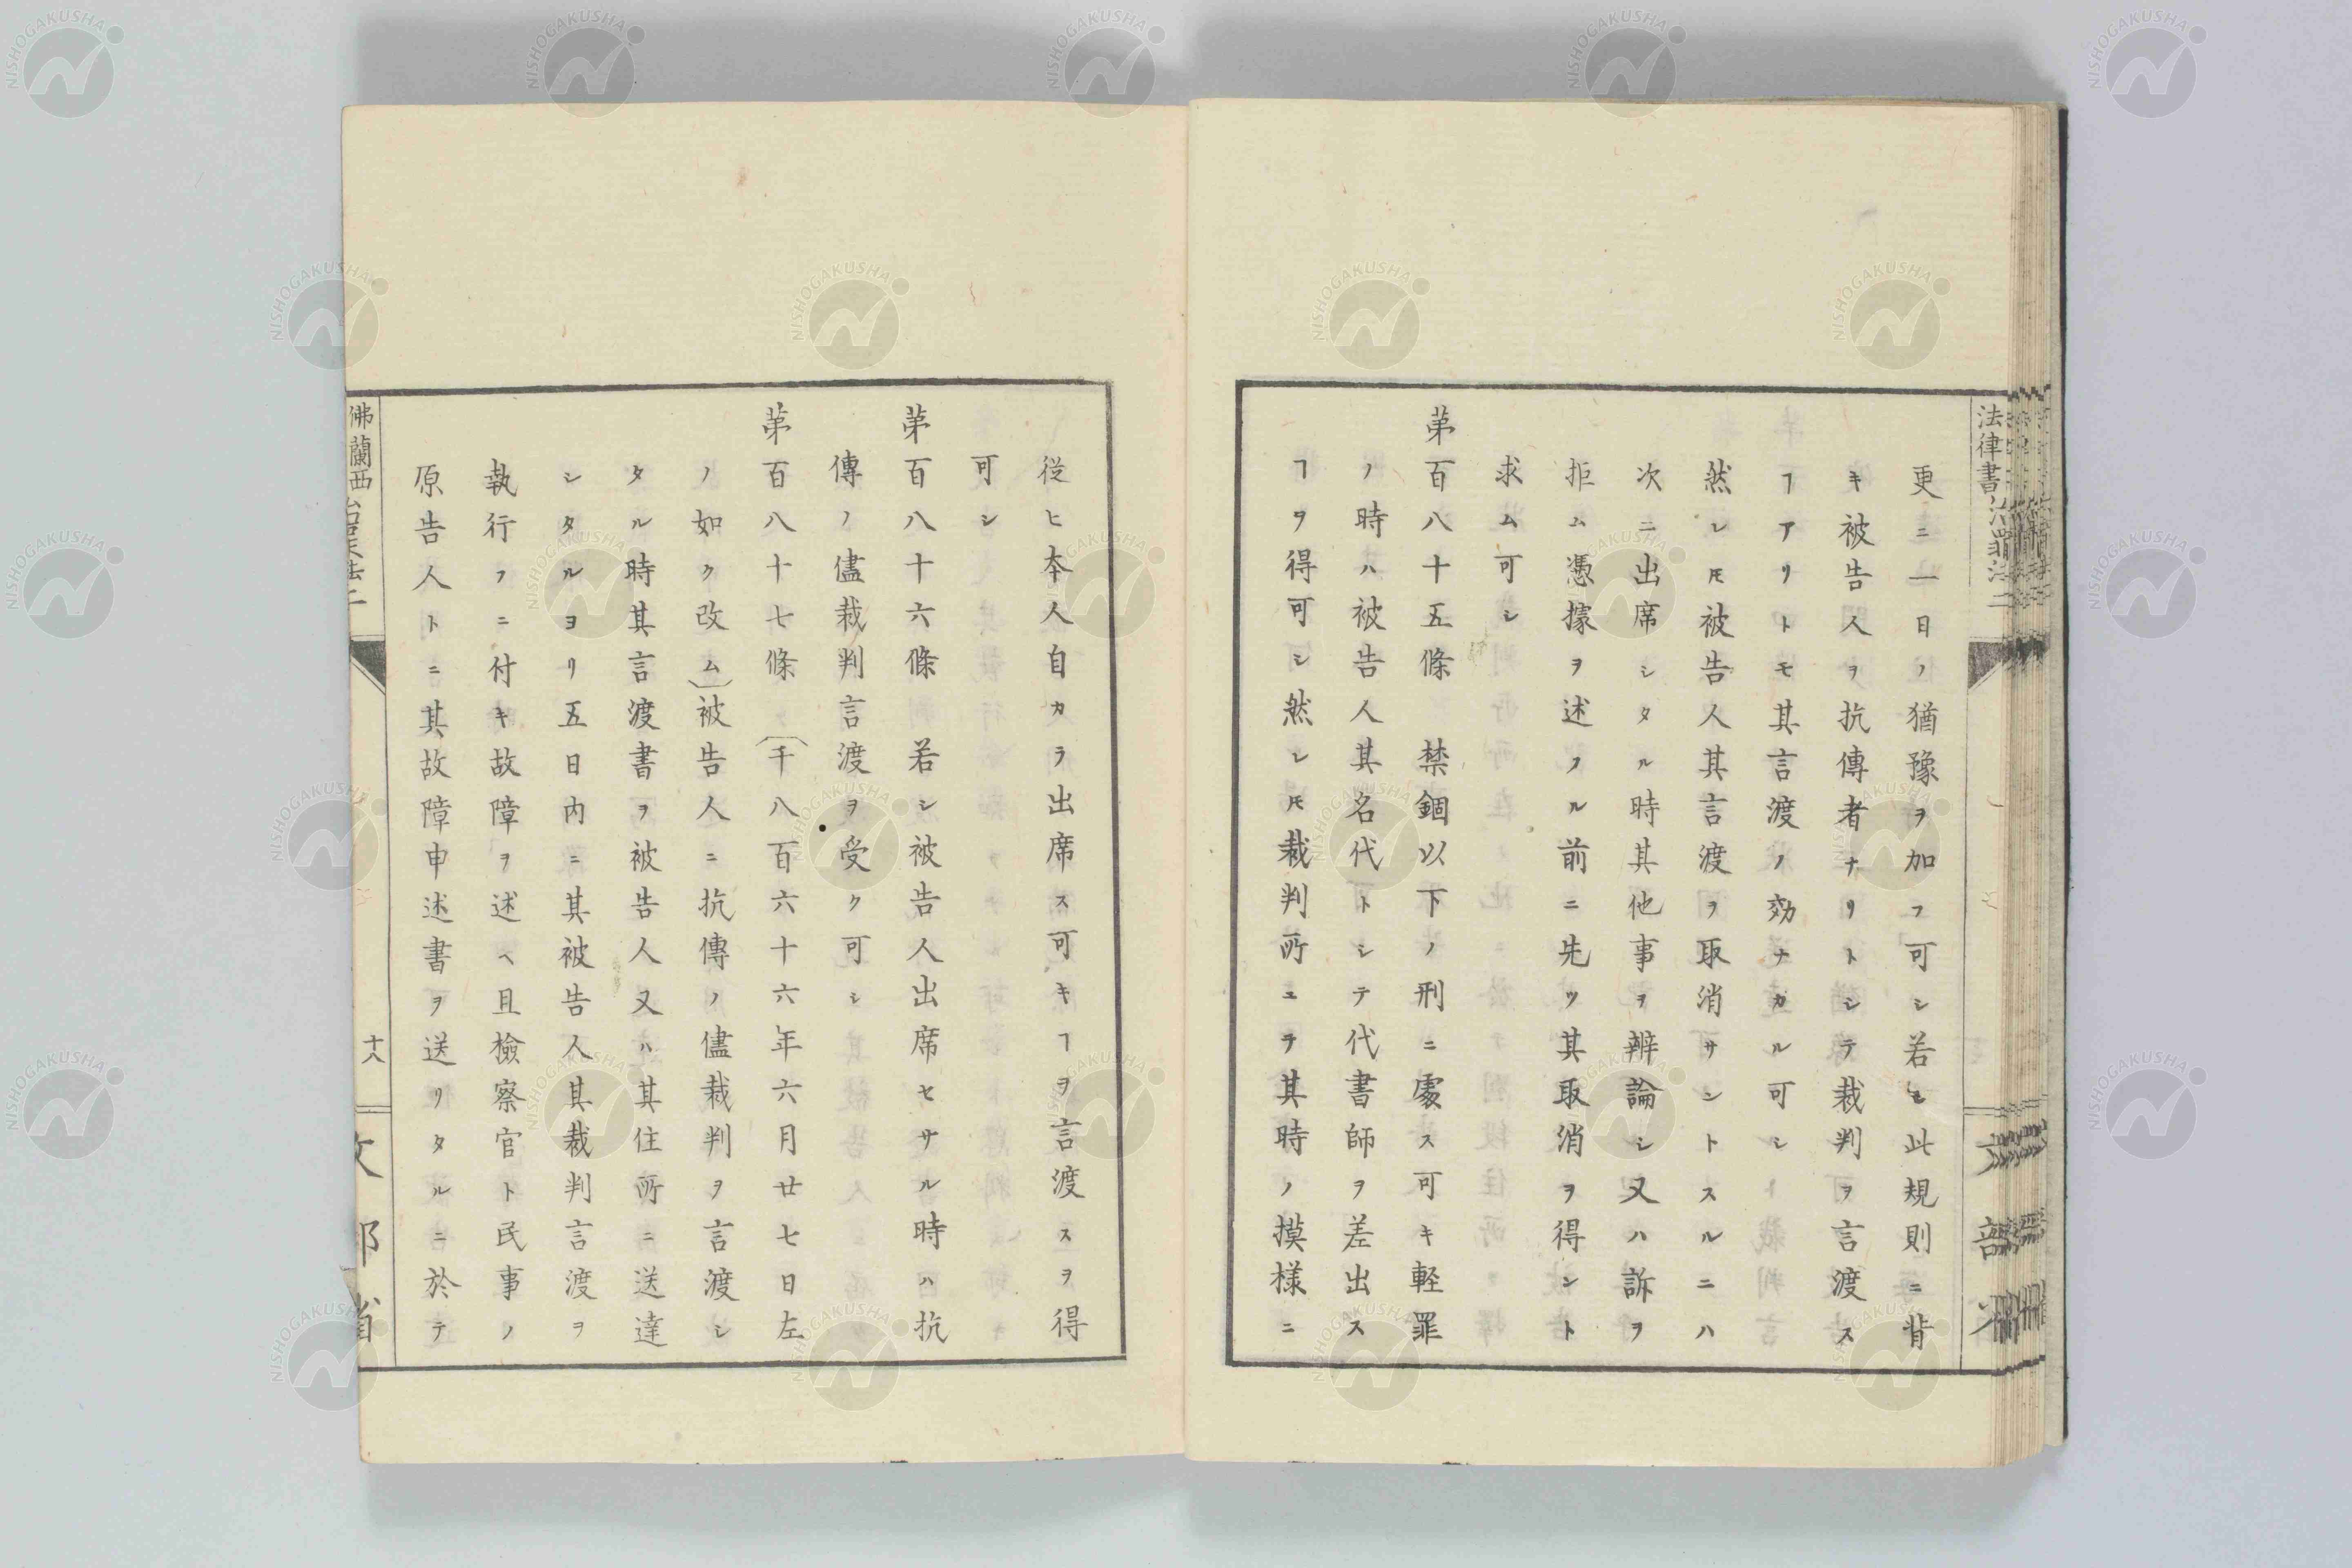 更ニ一日ノ猶豫ヲ加フ可シ若シ此規則ニ背
キ被告人ヲ抗傳者ナリトシテ裁判ヲ言渡ス
ヿアリトモ其言渡ノ効ナカル可シ
然レ𪜈被告人其言渡ヲ取消サントスルニハ
次ニ出席シタル時其他事ヲ辨論シ又ハ訴ヲ
拒ム憑據ヲ述フル前ニ先ツ其取消ヲ得ント
求ム可シ
第百八十五條 禁錮以下ノ刑ニ處ス可キ軽罪
ノ時ハ被告人其名代トシテ代書師ヲ差出ス
ヿヲ得可シ然レ𪜈裁判所ニテ其時ノ摸様ニ
従ヒ本人自カラ出席ス可キヿヲ言渡スヲ得
可シ
第百八十六條 若シ被告人出席セサル時ハ抗
傳ノ儘裁判言渡ヲ受ク可シ
第百八十七條 (千八百六十六年六月廿七日左
ノ如ク改ム)被告人ニ抗傳ノ儘裁判ヲ言渡シ
タル時其言渡書ヲ被告人又ハ其住所ニ送達
シタルヨリ五日内ニ其被告人其裁判言渡ヲ
執行フニ付キ故障ヲ述ヘ且檢察官ト民事ノ
原告人トニ其故障申述書ヲ送リタルニ於テ
佛蘭西
十八
法律書
NISHOGAKUSHA